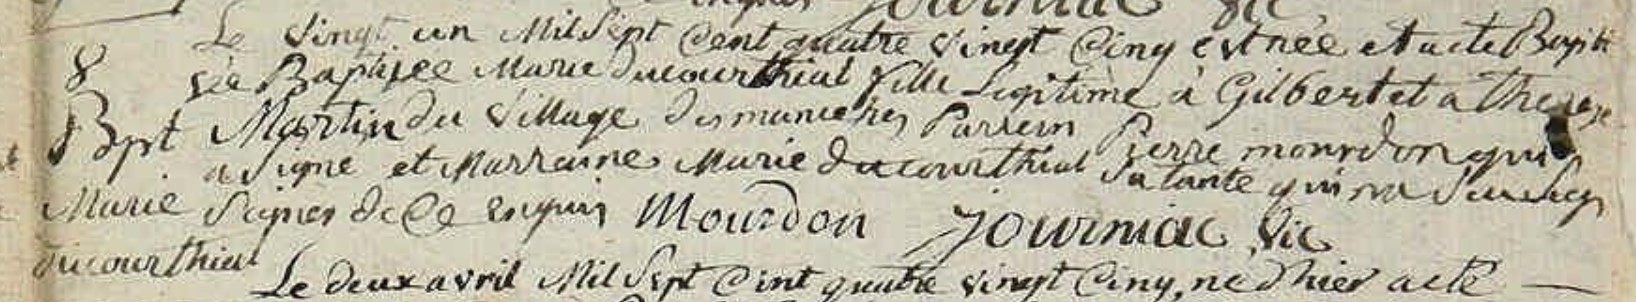 enquis Journiac vic
Le vingt un Mil Sept Cent quatre vingt Cinq est née et a eté Bapti
8
sée Baptisée Marie ducourthial fille Legitime a Gilbert et a therese
Bpt
Martin du village des Parrein Pierre mourdon qui
a signé et Marraine Marie ducourthial sa tante qui
Marie
signer de Ce enquis Mourdon Journiac vic
ducourthial
Le deux avril Mil Sept Cent quatre vingt Cinq, né d'hier a eté